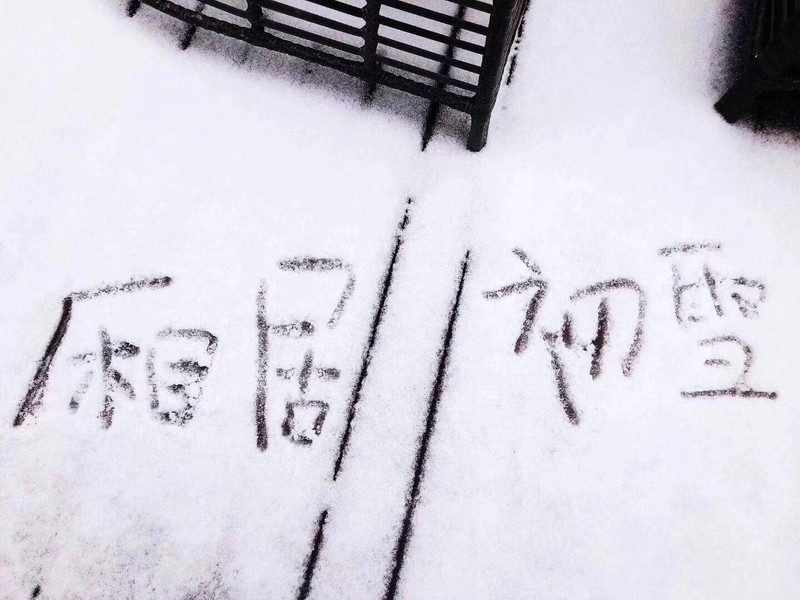 厢居 初雪